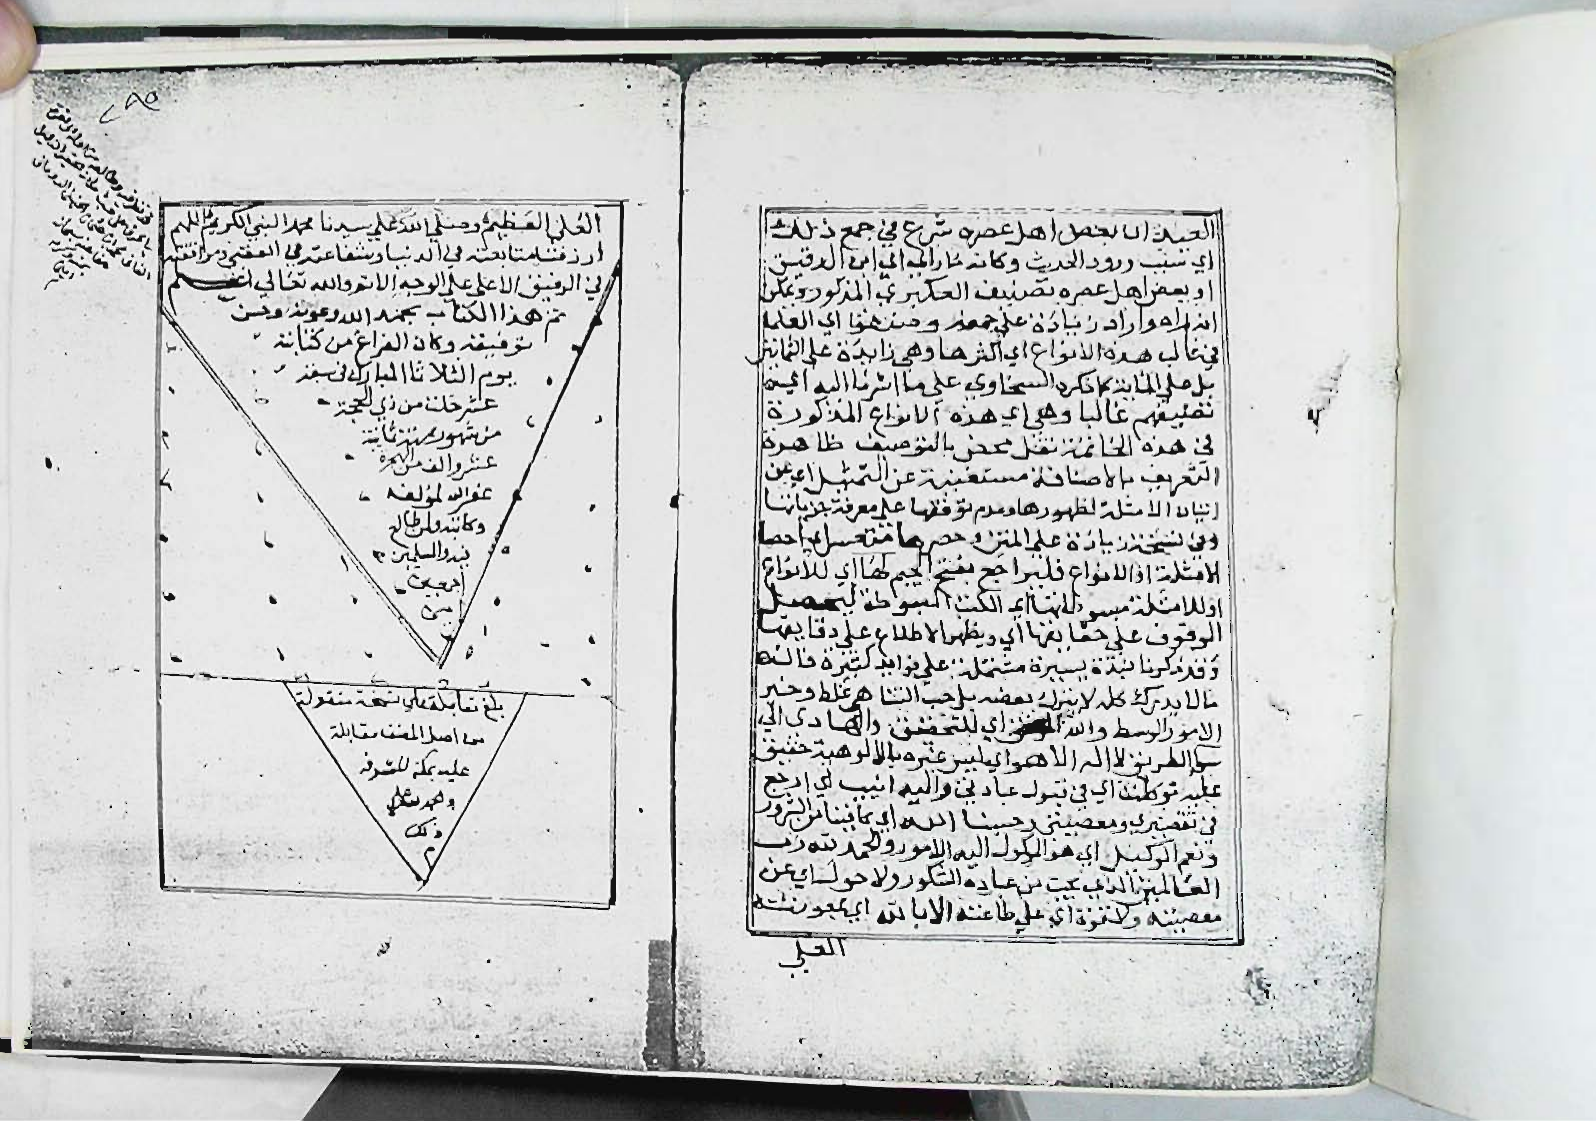 العيد ان بعض اهل عصره شرع في جمع ذلك
اي سبب ورود الحديث وكانه اشار الى ابن الدقيق
او بعض اهل عصره تصنيف العكبري المذكور ويمكن
انه راه واراد زيادة على جمعه وصنفوا اي العلماء
في غالب هذه الانواع اي اكثرها وهي زايدة على الثمانين
بل على المائة كما ذكره السخاوي على ما اشرنا اليه
تصنيفهم غالبا وهي اي هذه الانواع المذكورة
في هذه الخاتمة نقل محض بالتوصيف ظاهرة
التعريف بالاضافة مستغنية عن التمثيل اي عن
اتيان الامثلة لظهورها وعدم توقفها على معرفة جزئياتها
وفي نسخة زيادة على المتن وحصرها متعسر اي احصا
الامثلة او الانواع فليراجع بفتح الجيم لها اي للانواع
او للامثلة مبسوطاتها اي الكتب المبسوطة ليحصل
الوقوف على حقايقها اي ويظهر الاطلاع على دقايقها
وقد ذكرنا نبذة يسيرة مشتملة على فوايد كثيرة فانه
ما لا يدرك كله لا يترك بعضه بل حب التناهي غلط وخير
الامور الوسط والله الموفق اي للتحقيق والهادي الى
سوا الطريق لا اله الا هو اي ليس غيره بالالوهية حقيق
عليه توكلت اي في قبول عبادتي واليه انيب اي ارجع
في تقصيري ومعصيتي وحسبنا الله اي كافينا من الشرور
ونعم الوكيل اي هو الموكول اليه الامور والحمد لله رب
العالمين الذي يجب من عباده الشكور ولا حول اي عن
معصيته ولا قوة اي على طاعته الا بالله اي بمعونته
العلي
٢٨٥
العلي العظيم وصلى الله على سيدنا محمد النبي الكريم اللهم
ارزقنا متابعته في الدنيا وشفاعته في العقبى ومرافقته
في الرفيق الاعلى على الوجه الاتم والله تعالى اعلم
تم هذا الكتاب بحمد الله وعونه وحسن
توفيقه وكان الفراغ من كتابته
يوم الثلاثا المبارك في
عشر خلت من ذي الحجة
من شهور سنة ثمانية
عشر والف من الهجرة
غفر الله لمؤلفه
وكاتبه ولمن طالع
فيه والمسلمين
اجمعين
امين
بلغ مقابلة على نسخة منقولة
من اصل المصنف مقابلة
عليه بمكة المشرفة
والحمد لله على
ذلك